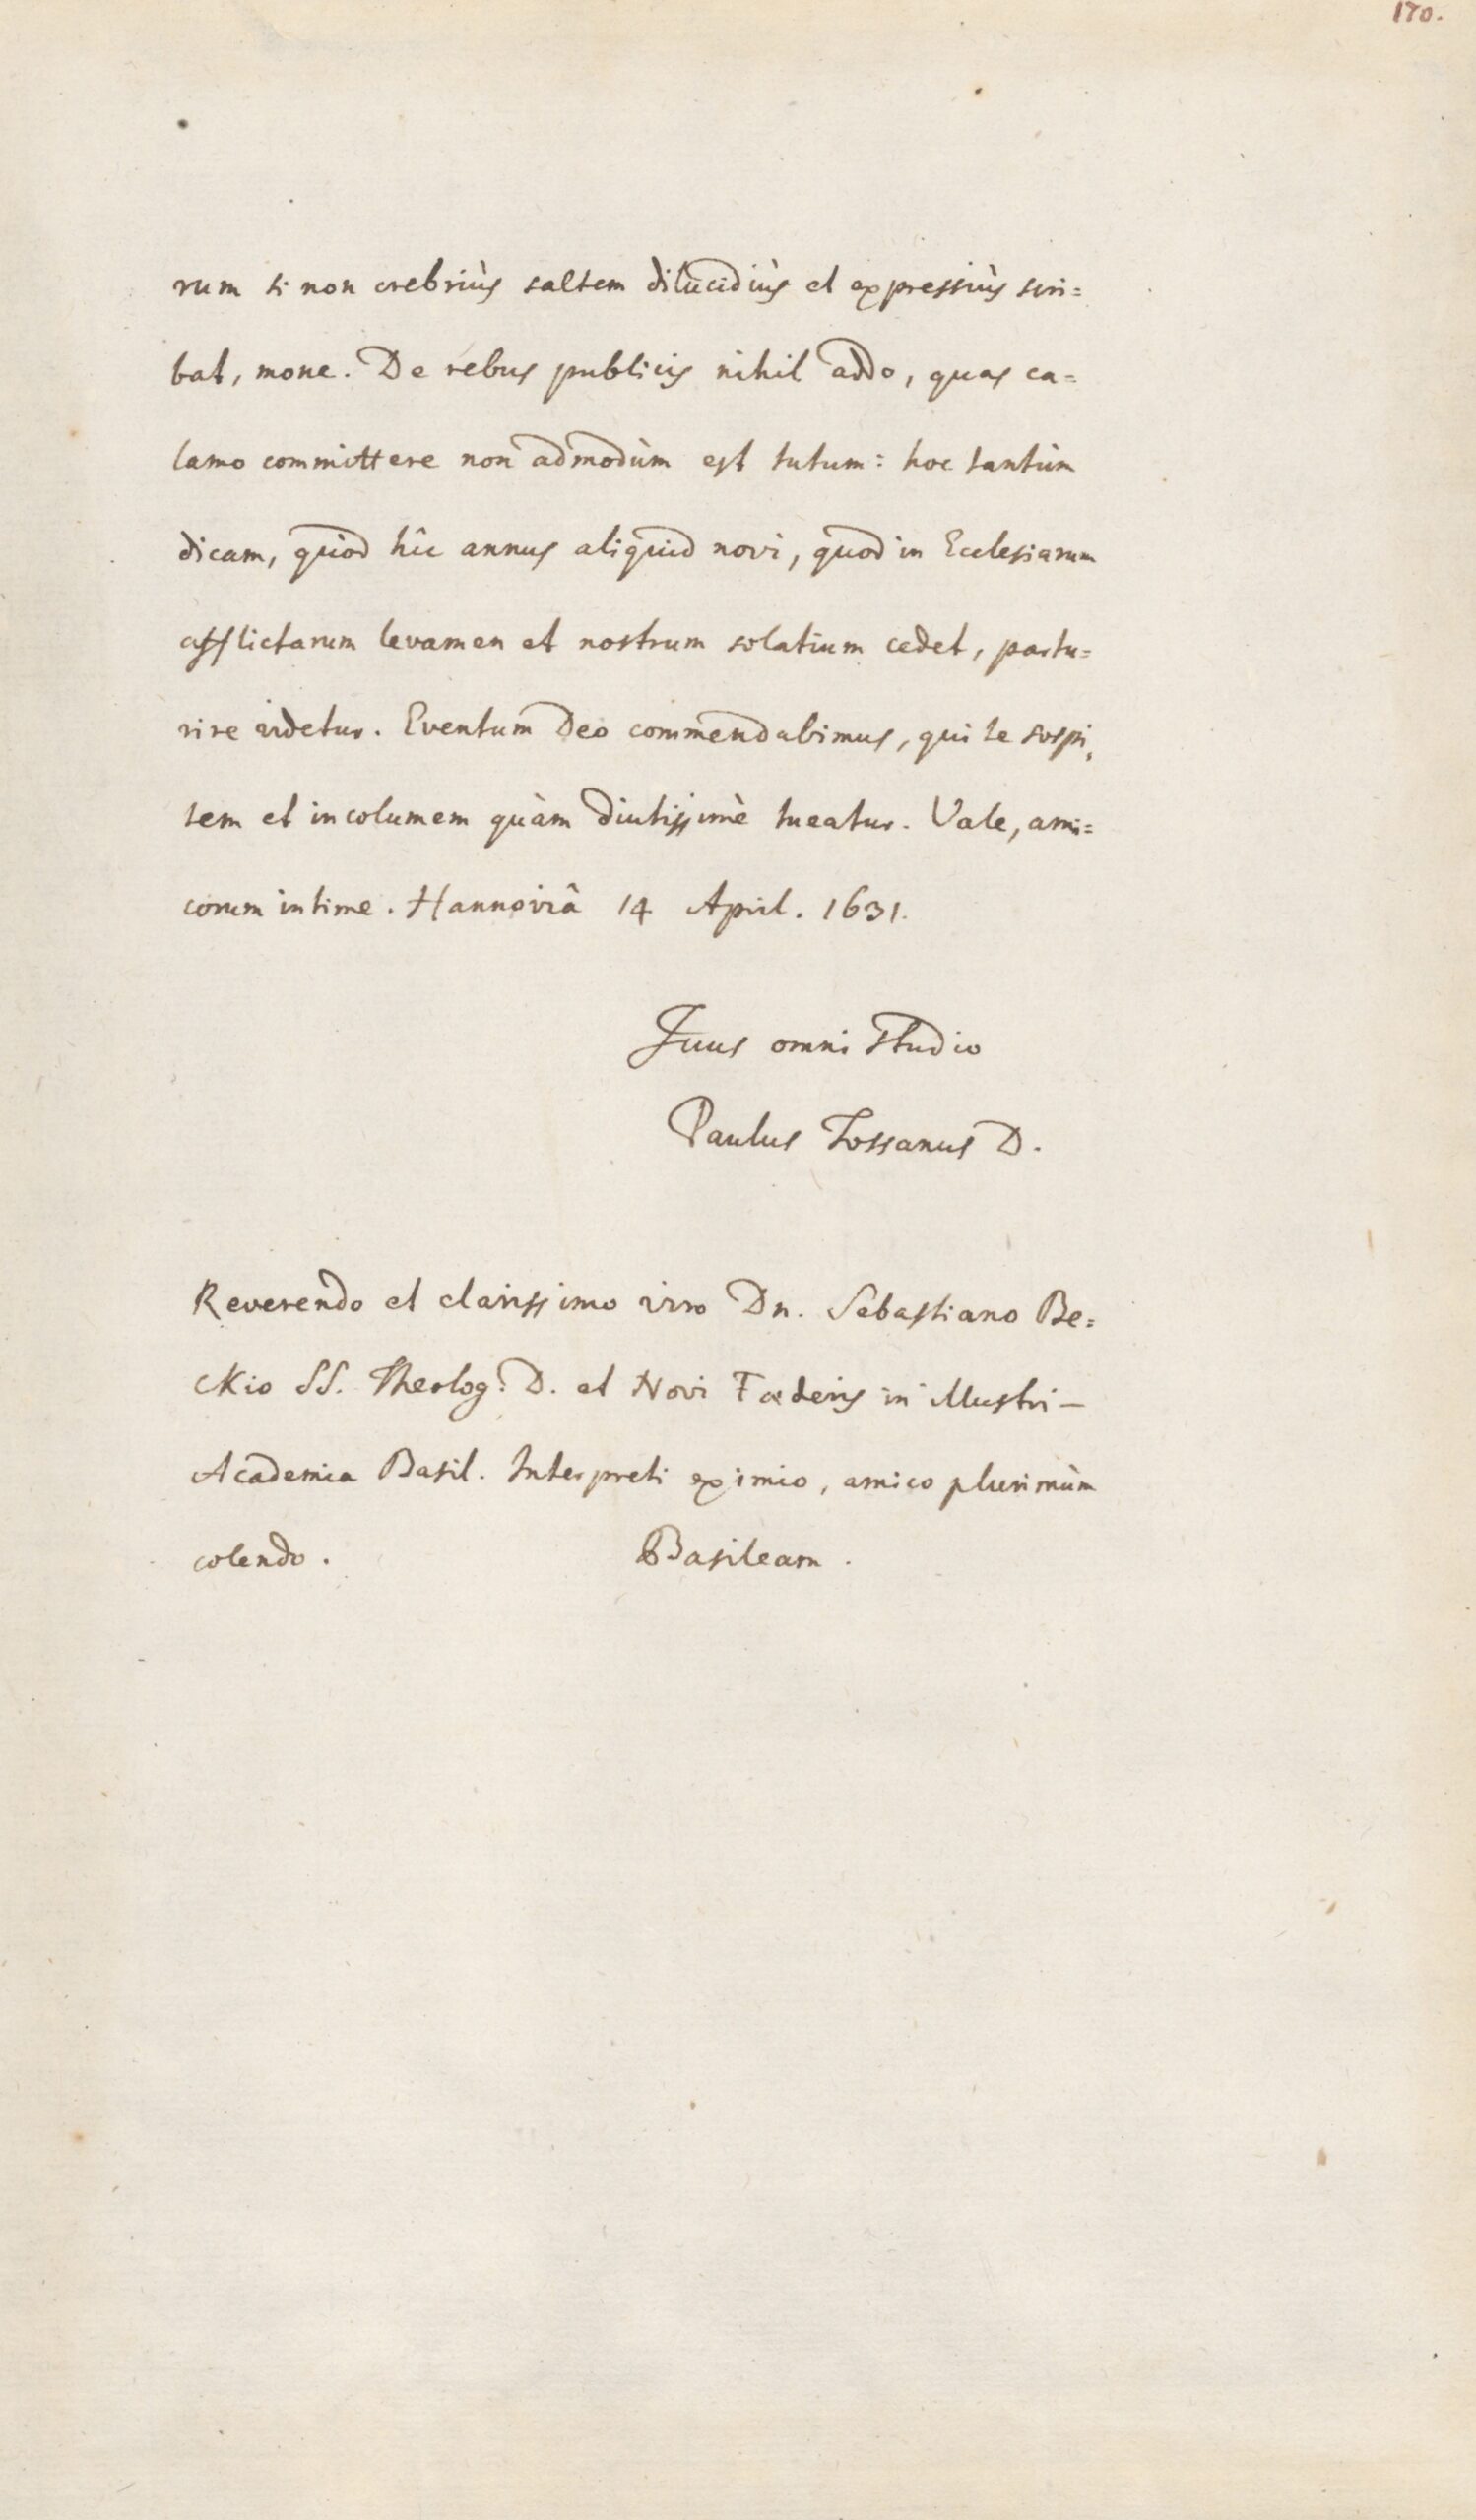 170.
rum si non crebriùs saltem dilucidiùs et expressiùs scri=
bat, mone. De rebus publicis nihil addo, quas ca=
lamo committere non admodùm est tutum: hoc tantùm
dicam, quòd hîc annus aliquid novi, quod in Ecclesiarum
afflictarum levamen et nostrum solatium cedet, partu=
rire videtur. Eventum Deo commendabimus, qui te sospi,
tem et incolumem quàm diutissimè tueatur. Vale, ami=
corum intime. Hannoviâ 14 April. 1631.
Tuus omni studio
Paulus Tossanus D.
Reverendo et clarissimo viro Dn. Sebastiano Be=
ckio SS. Theolog: D. et Novi Fœderis in illustri–
Academia Basil. Interpreti eximio, amico plurimùm
colendo. Basileam.